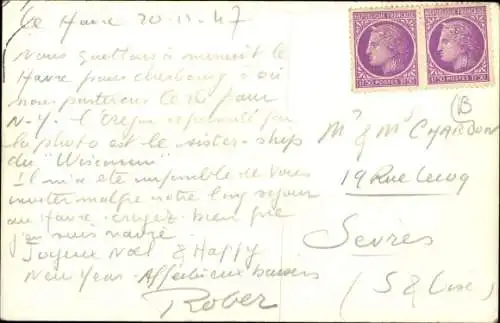 Le Havre 20-11-47
Nous quittons à minuit le
Havre pour cherbourg d'où
nous partirons le 26 pour
N-Y. l'Oregon représenté par
la photo est le sister-ship
du "Wisconsin"
Il m'a été impossible de vous
inviter malgré notre long séjour
au Havre. croyez bien que
j'en suis navré.
Joyeux Noël & Happy
New Year. Affectueux baisers
Rober
REPUBLIQUE FRANÇAISE
1F50 POSTES 1F50
REPUBLIQUE FRANÇAISE
1F50 POSTES 1F50
B
Mr & Me CHARDON
19 Rue Lecoq
Sevres
(S & Oise)